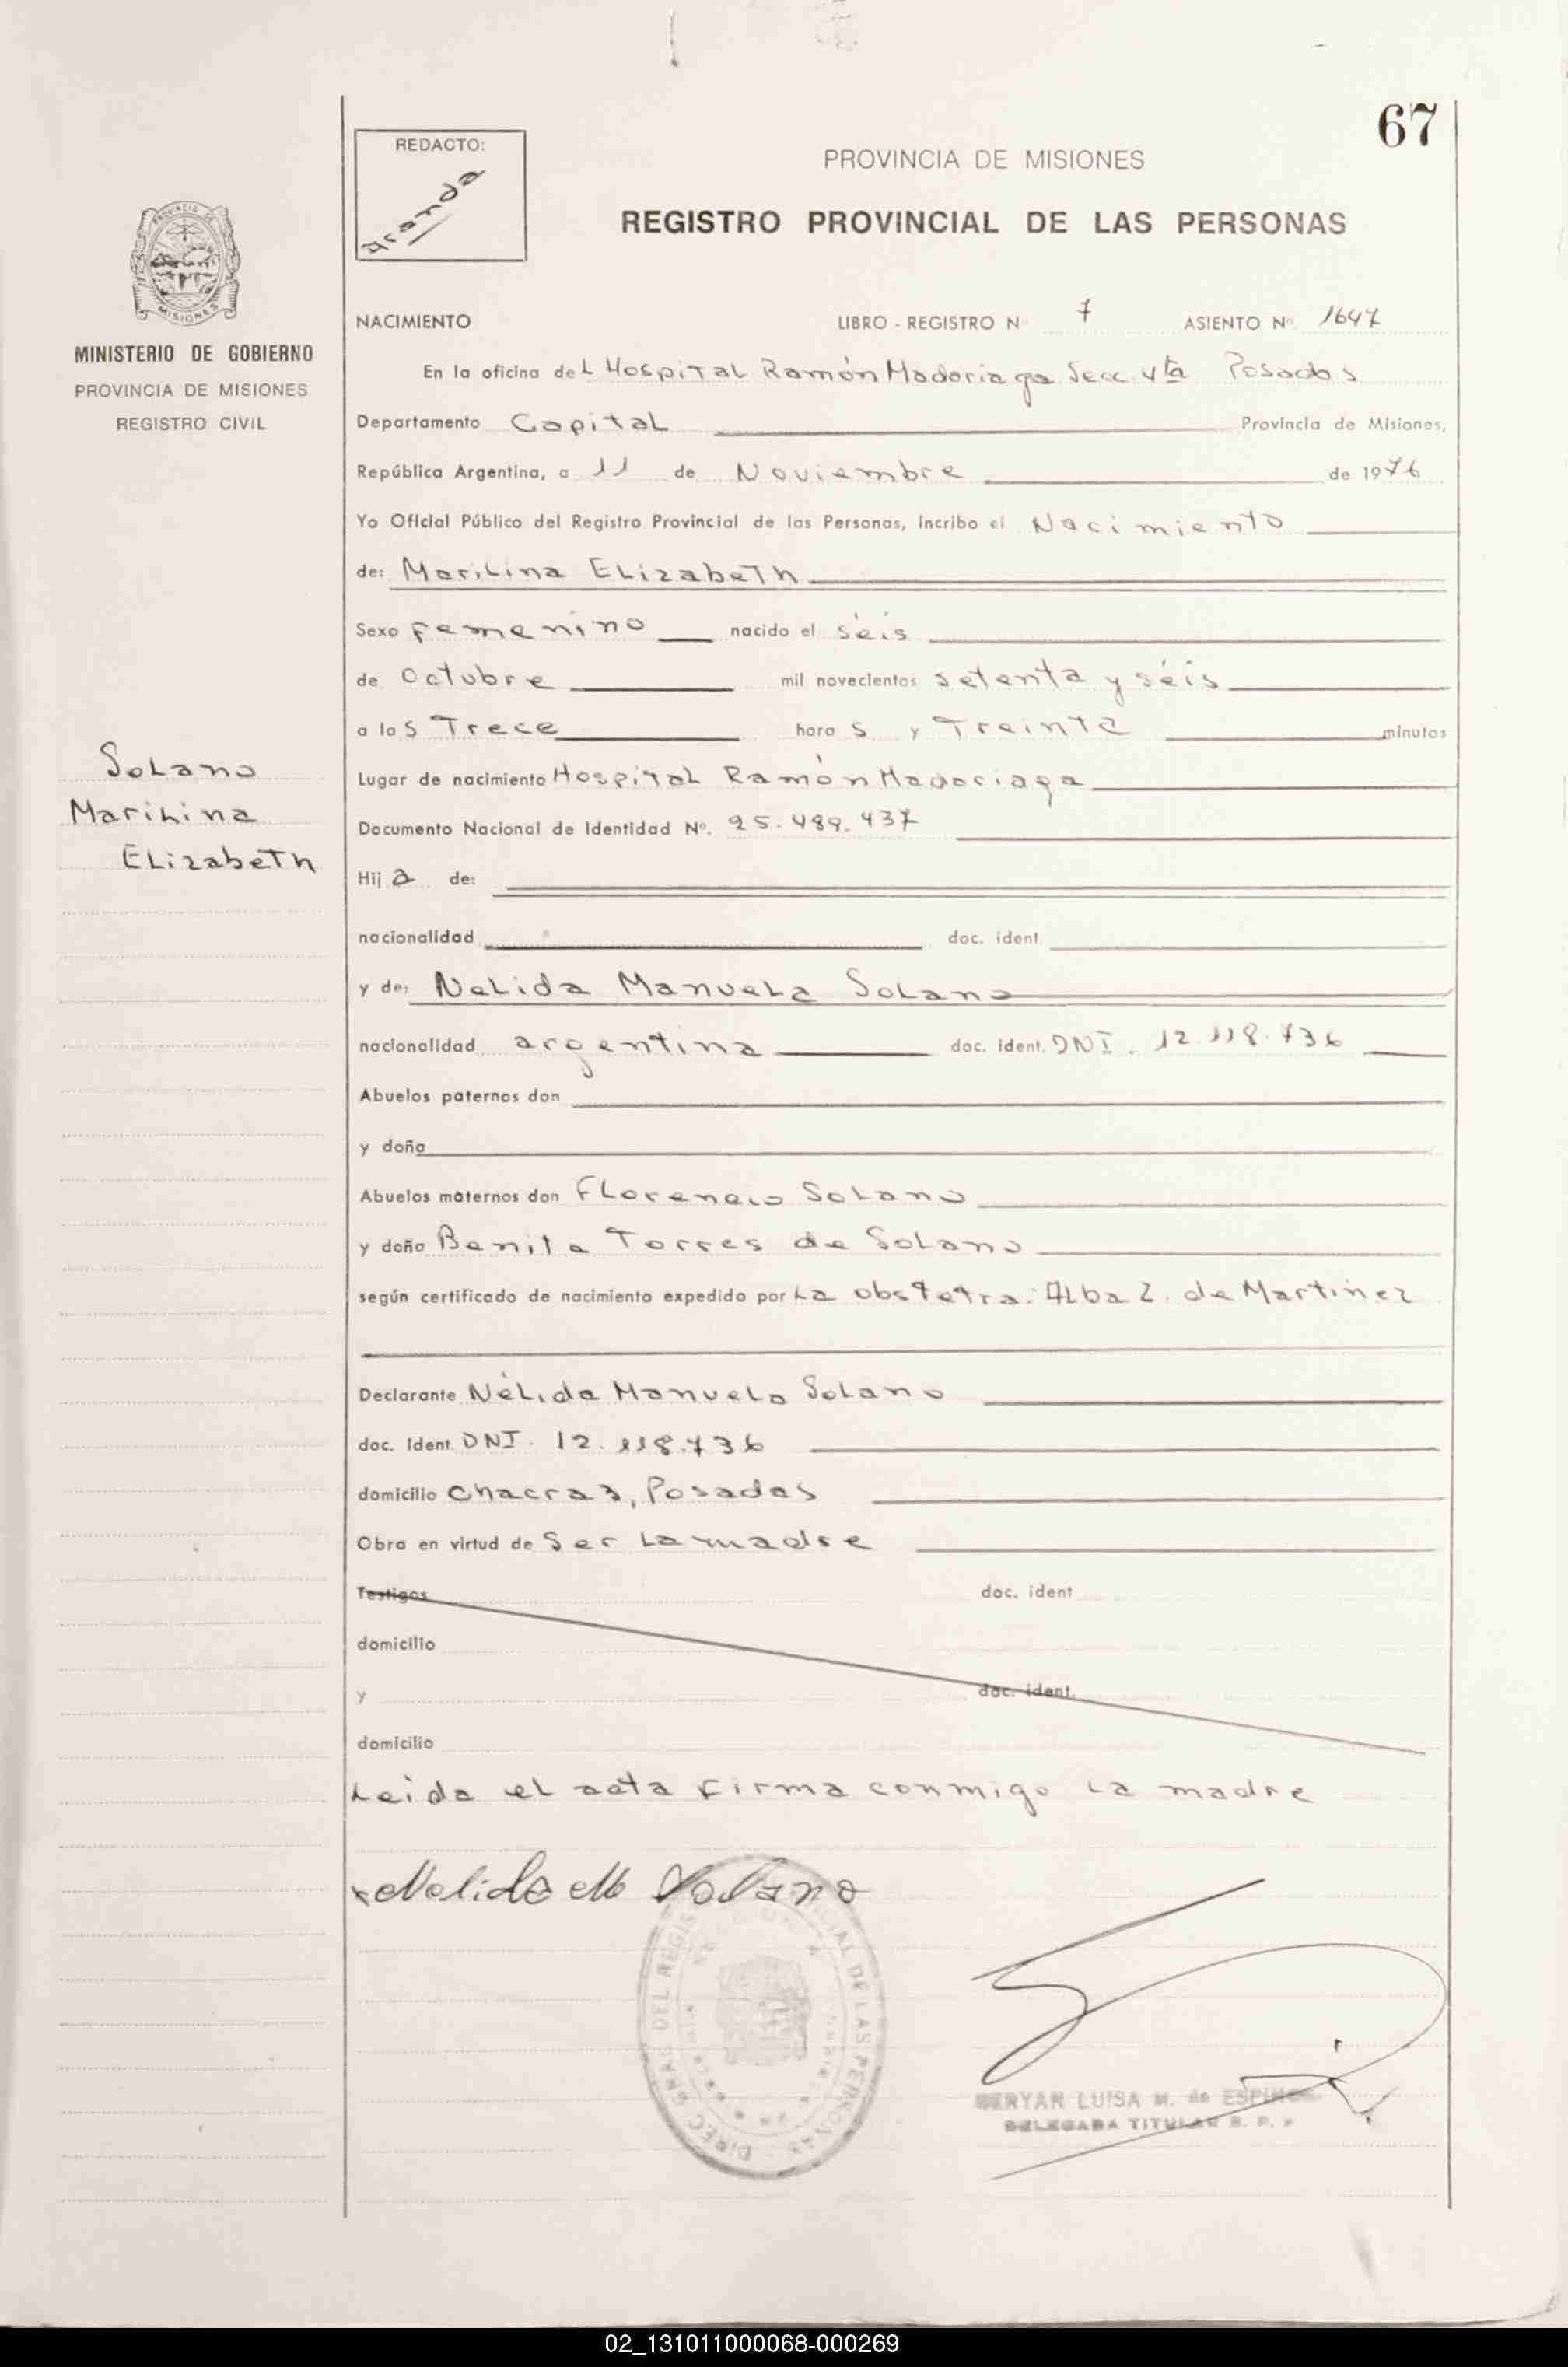 67
REDACTO:
Aranda
PROVINCIA DE MISIONES
REGISTRO PROVINCIAL DE LAS PERSONAS
MINISTERIO DE GOBIERNO
PROVINCIA DE MISIONES
REGISTRO CIVIL
NACIMIENTO LIBRO - REGISTRO Nº 7 ASIENTO Nº 1647
En la oficina del Hospital Ramón Madariaga Secc. 4ta Posadas
Departamento Capital Provincia de Misiones,
República Argentina, a 11 de Noviembre de 1976
Yo Oficial Público del Registro Provincial de las Personas, incribo el Nacimiento
de: Marilina Elizabeth
Sexo femenino nacido el séis
de octubre mil novecientos setenta y séis
a las Trece horas y Treinta minutos
Solano
Marilina
Elizabeth
Lugar de nacimiento Hospital Ramón Madariaga
Documento Nacional de Identidad Nº. 25.489.437
Hija de:
nacionalidad doc. ident.
y de: Nelida Manuela Solano
nacionalidad argentina doc. ident. DNI. 12.118.736
Abuelos paternos don
y doña
Abuelos maternos don Florencio Solano
y doña Benita Torres de Solano
según certificado de nacimiento expedido por La obstetra: Alba Z. de Martinez
Declarante Nélida Manuela Solano
doc. Ident. DNI. 12.118.736
domicilio Chacra 3, Posadas
Obra en virtud de Ser La madre
Testigos doc. ident
domicilio
y doc. ident.
domicilio
Leida el acta firma conmigo la madre
Nelida M Solano
DIREC. GRAL. DEL REGISTRO PROVINCIAL DE LAS PERSONAS
LUISA M. de
DELEGADA TITULAR R. P. P
02_131011000068-000269